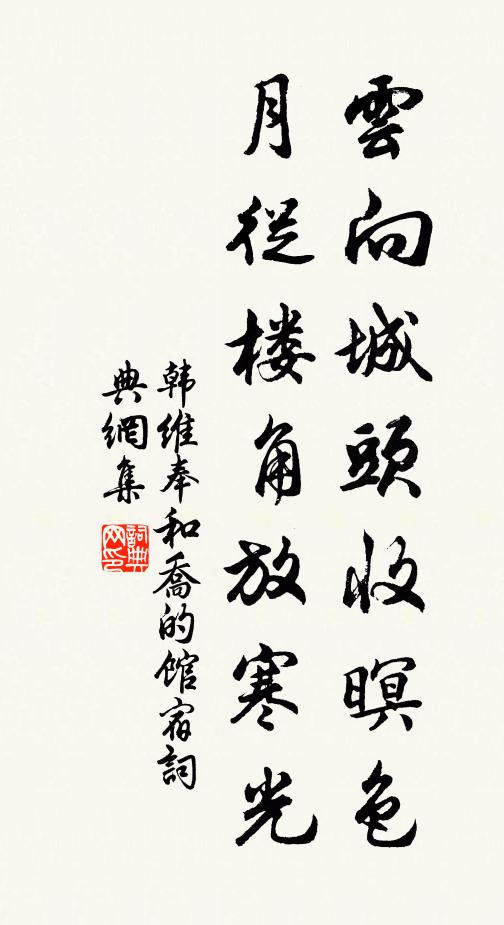 雲向城頭收暝色
月從楼角放寒光
韩維奉和喬的馆宿詞
典網集
詞典网印